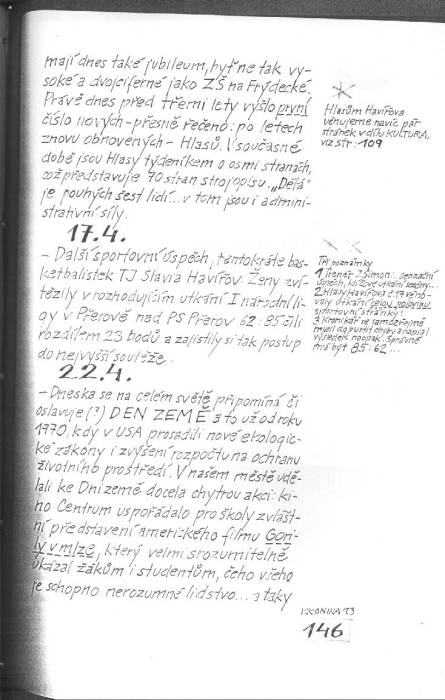 mají dnes také jubileum, byť ne tak vy-
soké a dvojciferné jako ZŠ na Frýdecké.
Právě dnes před třemi lety vyšlo první
číslo nových - přesně řečeno: po letech
znovu obnovených - Hlasů. V současné
době jsou Hlasy týdeníkem o osmi stranách,
což představuje 90 stran strojopisu. „Dělá"
je pouhých šest lidí... v tom jsou i admini-
strativní síly.
17.4.
- Další sportovní úspěch, tentokráte bas-
ketbalistek TJ Slavia Havířov. Ženy zví-
tězily v rozhodujícím utkání I. národní li-
gy v Přerově nad PS Přerov 62:85 čili
rozdílem 23 bodů a zajistily si tak postup
do nejvyšší soutěže.
22.4.
- Dneska se na celém světě připomíná či
oslavuje (?) DEN ZEMĚ a to už od roku
1970, kdy v USA prosadili nové ekologic-
ké zákony i zvýšení rozpočtu na ochranu
životního prostředí. V našem městě udě-
lali ke Dni země docela chytrou akci: ki-
no Centrum uspořádalo pro školy zvlášt-
ní představení amerického filmu Gori-
ly v mlze, který velmi srozumitelně
ukázal žákům i studentům, čeho všeho
je schopno nerozumné lidstvo... a taky
Hlasům Havířova
věnujeme navíc pár
stránek v dílu KULTURA,
viz str: 109
Tři poznámky
1 Trenér J. Šimon: senzační
úspěch, klíčové utkání sezóny...
2 Hlasy Havířova č. 17 věno-
valy utkání celou polovinu
sportovní stránky!
3 Kronikář se samozřejmě
mýlil dopustil chyby a napsal
výsledek naopak. Správně
má být 85:62...
KRONIKA 93
146